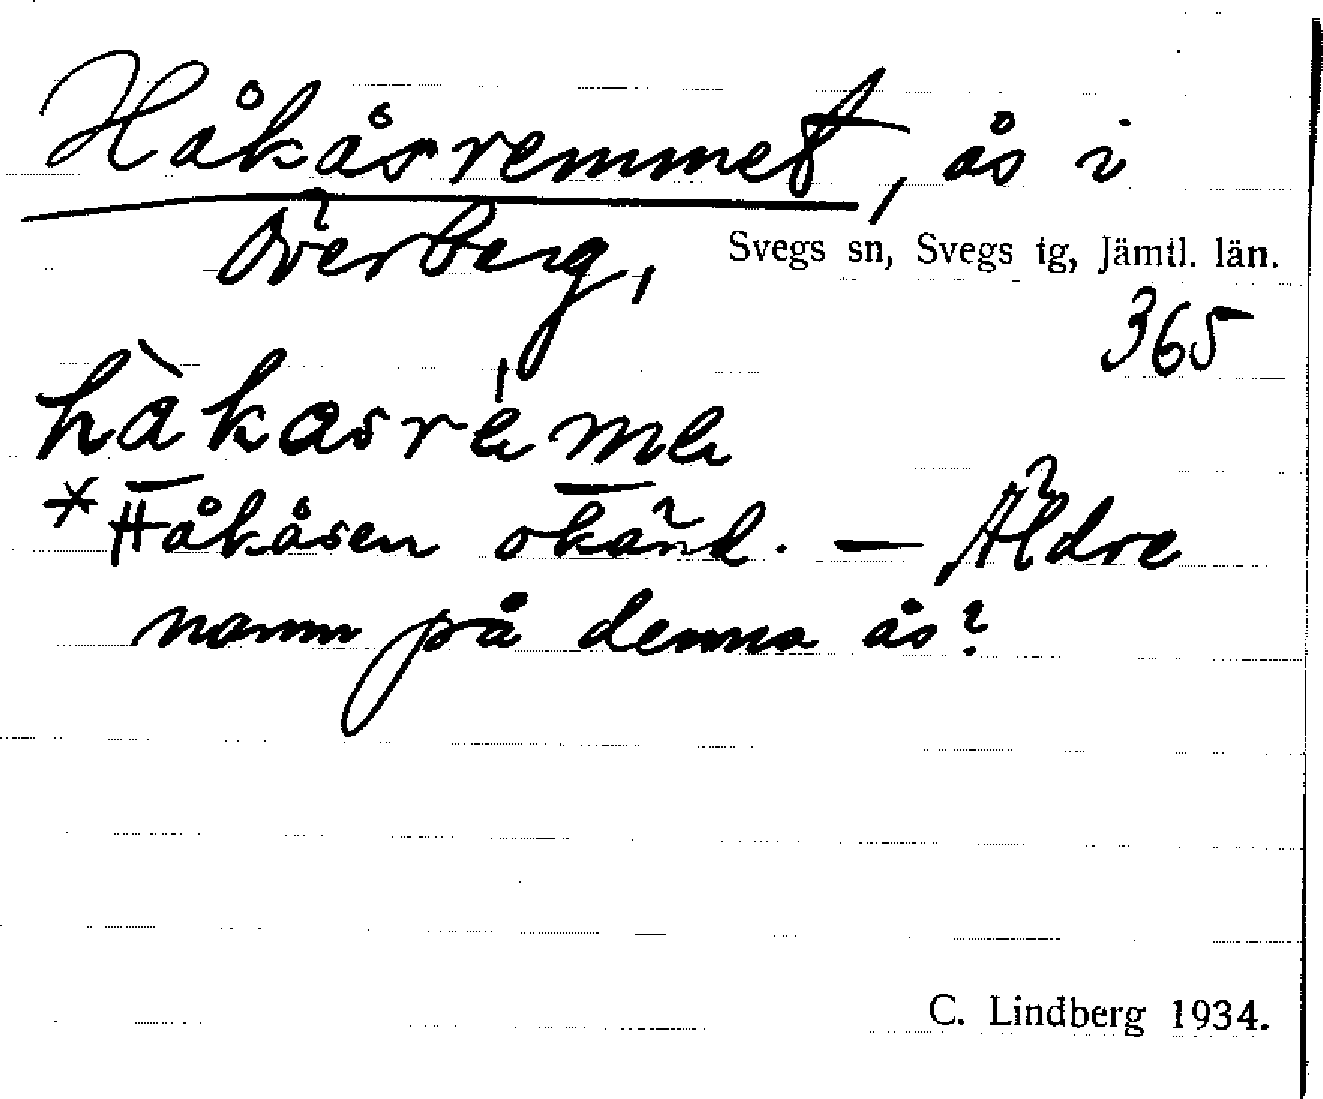 Håkåsremmet, ås i
Överberg, Svegs sn, Svegs tg, Jämtl. län.
365
hàkasrème
*Håkåsen okänd. — Äldre
namn på denna ås?
C. Lindberg 1934.